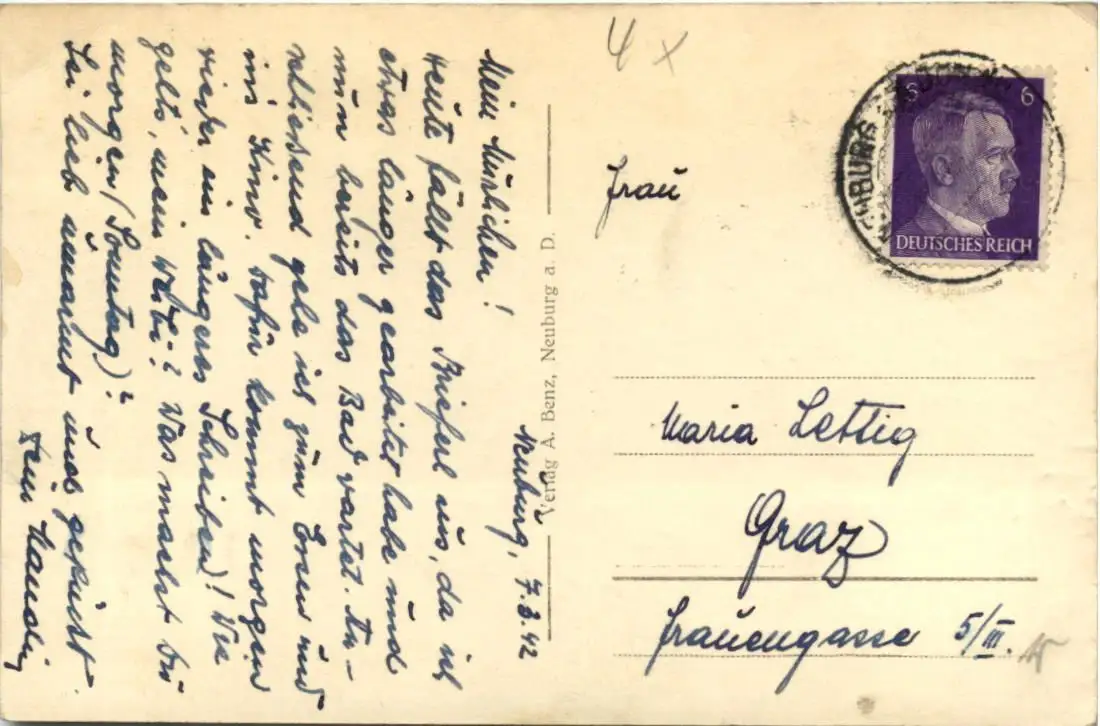 Neuburg, 7.3.42
Mein Mürlichen!
Heute fällt das Brieferl aus, da ich
etwas länger gearbeitet habe und
nun bereits das Bad wartet. An-
schließend gehe ich zum Essen und
ins Kino. Dafür kommt morgen
wieder ein längeres Schreiben! Wie
geht's, mein Weibi? Was machst Du
morgen (Sonntag)?
Sei lieb umarmt und geküsst
Dein
Verlag A. Benz, Neuburg a. D.
4 x
6
DEUTSCHES REICH
Frau
Maria Lettig
Graz
Frauengasse 5/III.